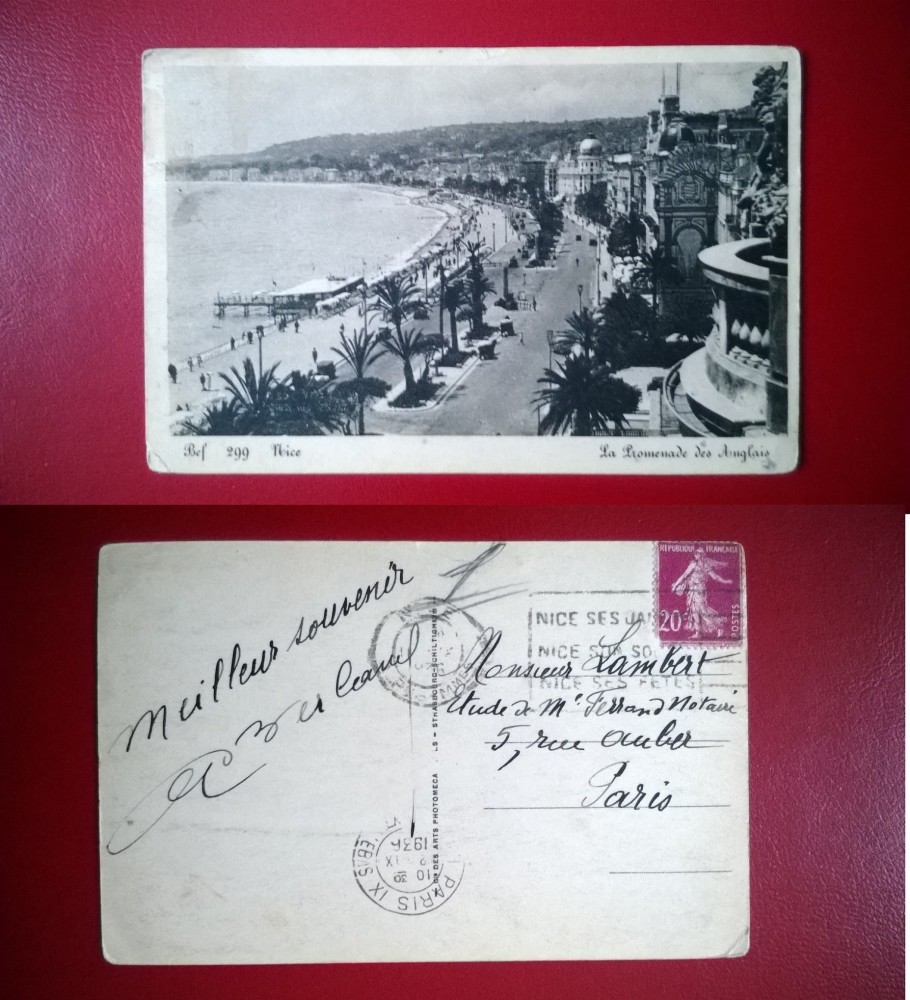 Bef 299 Nice
La Promenade des Anglais
Meilleur souvenir
REPUBLIQUE FRANCAISE
20c
POSTES
NICE SES JAR
NICE SON SO
NICE SES FETES
Monsieur Lambert
Etude de Me Ferrand Notaire
5, rue Auber
Paris
DES ARTS PHOTOMECA LS - STRASBOURG-SCHILTIGHEIM
PARIS IX
10 30
IX
1936